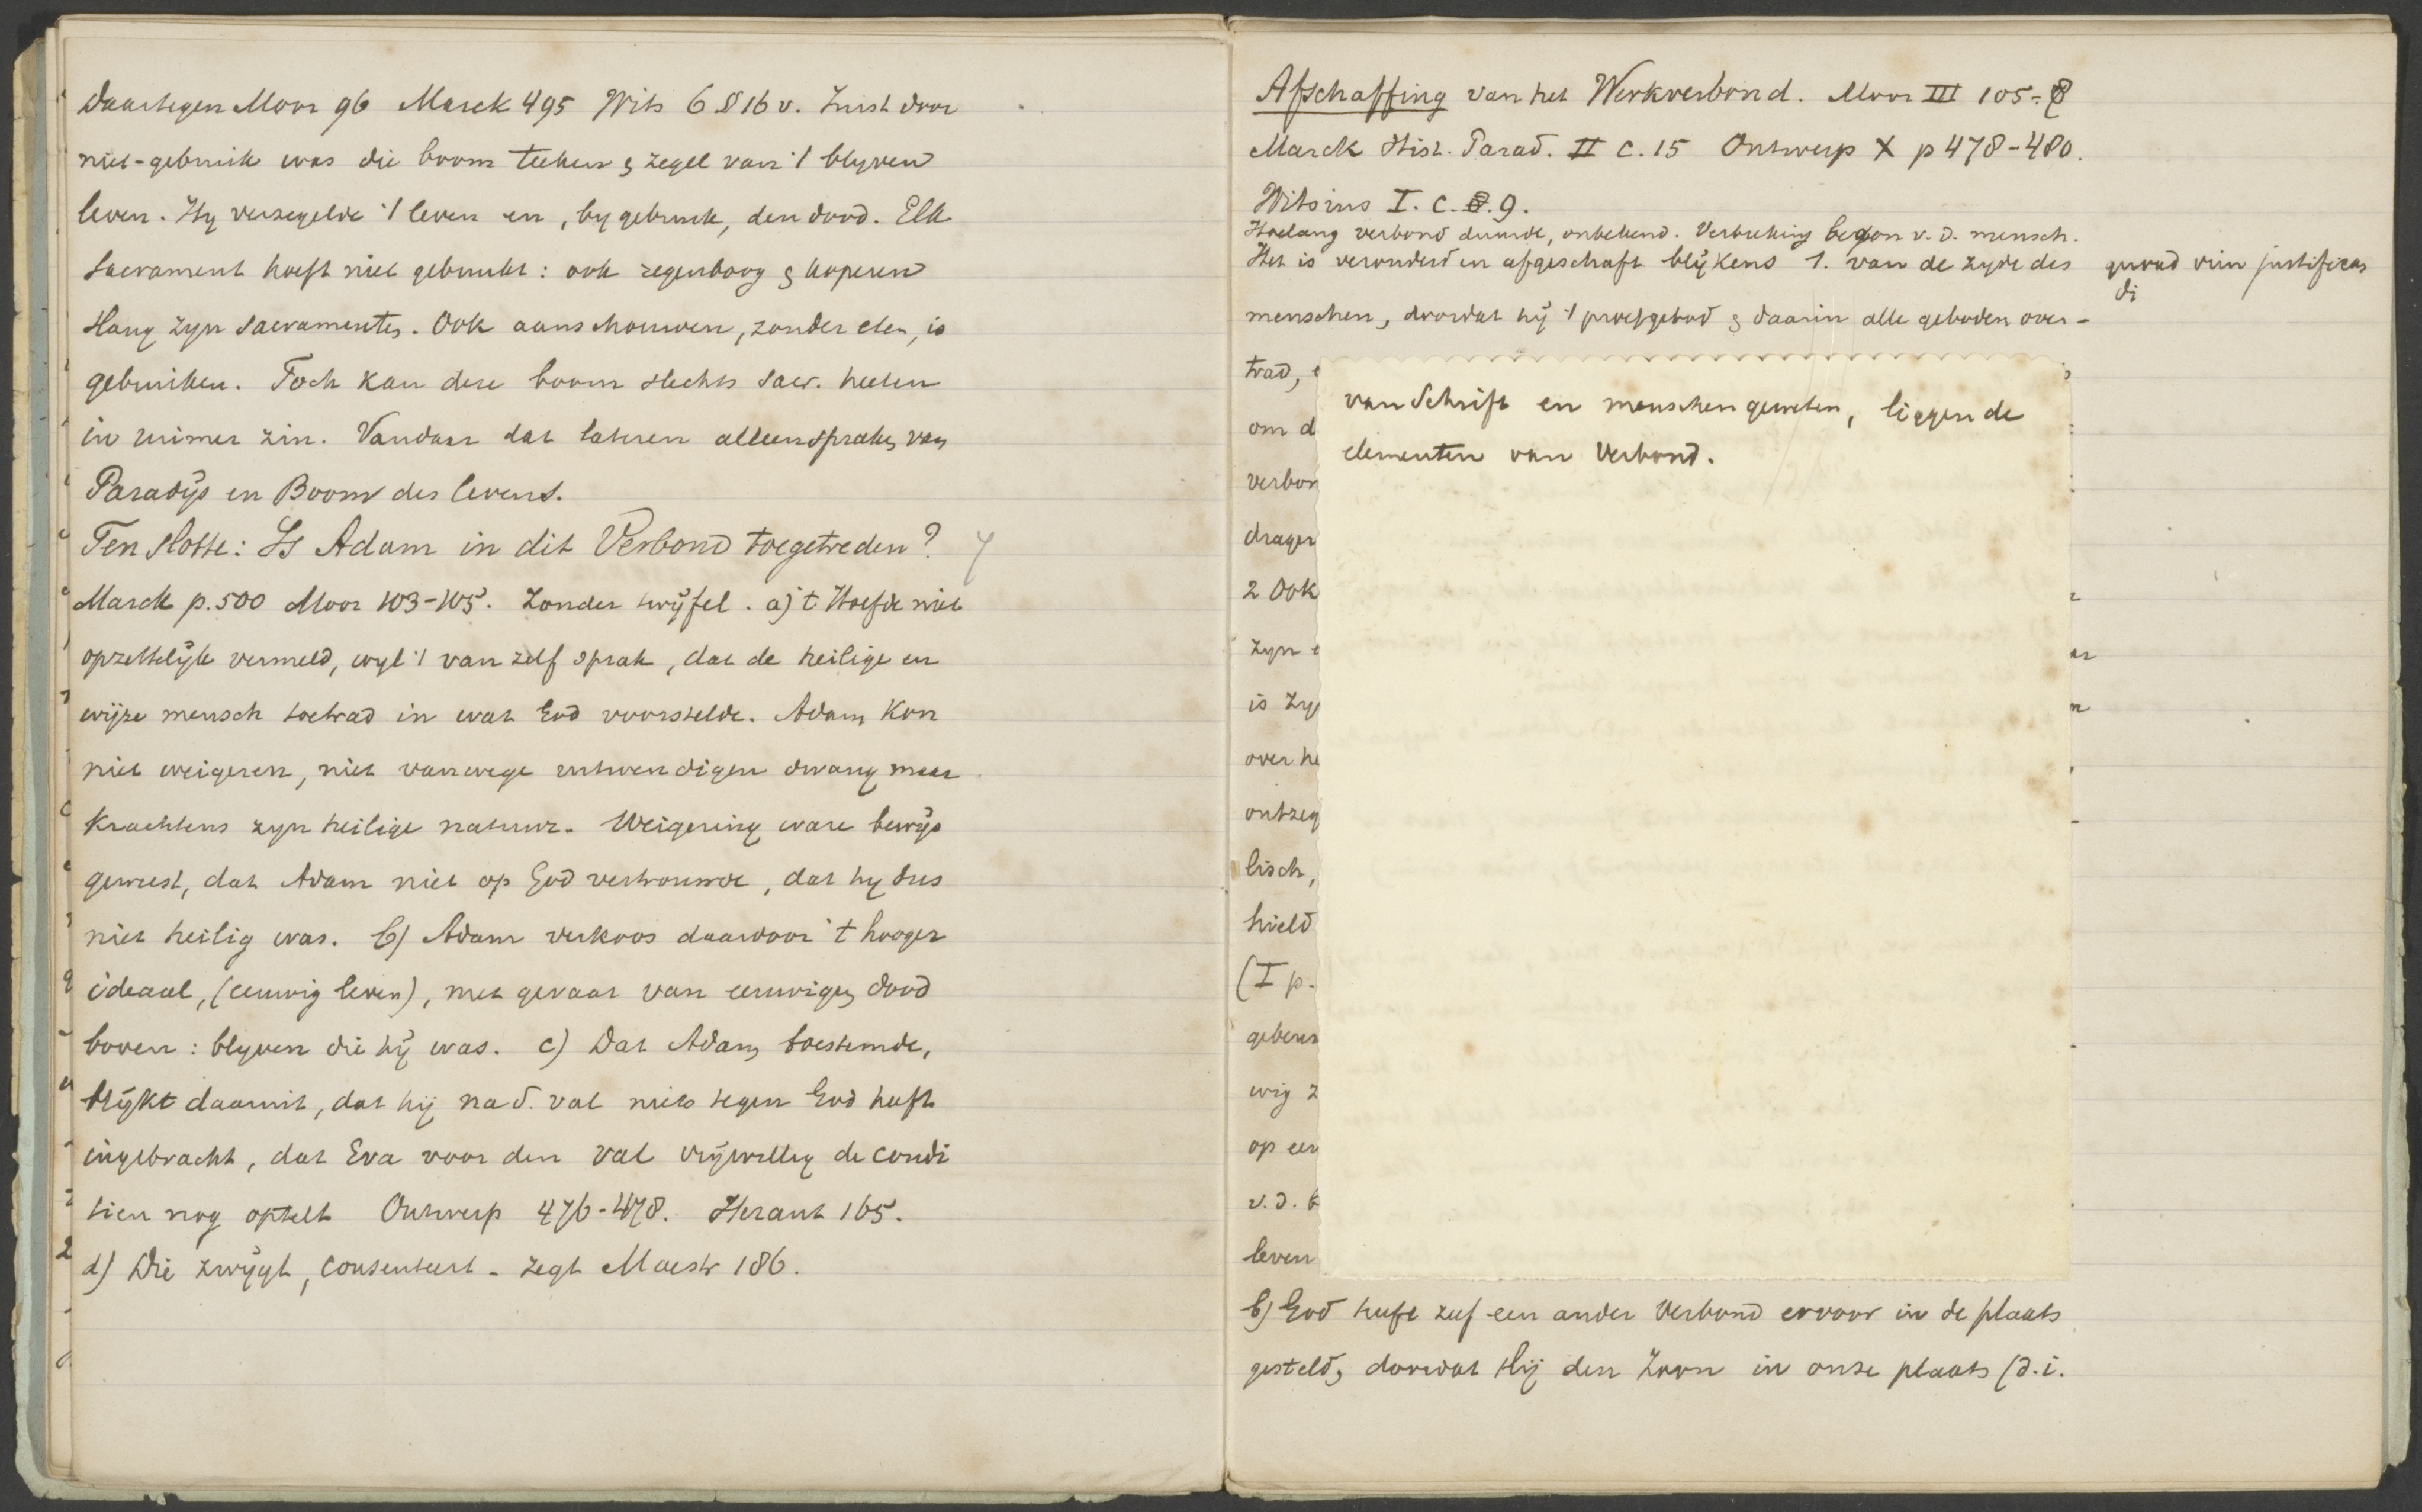 Daartegen Moor 96 Marck 495 Wits 6 § 16 v. Juist door
niet-gebruik was die boom teeken & zegel van 't blyven
leven. Hy verzegelde 't leven en, by gebruik, den dood. Elk
sacrament hoeft niet gebruikt: ook regenboog & koperen
slang zyn sacramenten. Ook aanschouwen, zonder eten, is
gebruiken. Toch kan deze boom slechts sacr. heeten
in ruimer zin. Vandaar dat lateren alleen spraken van
Paradijs en Boom des levens.
Ten slotte: Is Adam in dit Verbond toegetreden?
Marck p. 500 Moor 103-105. Zonder twijfel. a) 't Hoefde niet
opzettelijk vermeld, wyl 't van zelf sprak, dat de heilige en
wijze mensch toetrad in wat God voorstelde. Adam kon
niet weigeren, niet vanwege uitwendigen dwang maar
krachtens zyn heilige natuur. Weigering ware bewijs
geweest, dat Adam niet op God vertrouwde, dat hy dus
niet heilig was. b) Adam verkoos daardoor 't hooger
ideaal, (eeuwig leven), met gevaar van eeuwigen dood
boven: blyven die hij was. c) Dat Adam toestemde,
blijkt daaruit, dat hij na d. val niets tegen God heeft
ingebracht, dat Eva voor den val vrijwillig de condi
tien nog optelt Ontwerp 476-478. Heraut 165.
d) Die zwijgt, consenteert - zegt Maestr 186.
Afschaffing van het Werkverbond. Moor III 105-8
Marck Hist. Parad. II c. 15 Ontwerp X p 478-480.
Witsius I. c. 9.
Hoelang verbond duurde, onbekend. Verbreking begon v. d. mensch.
Het is veranderd en afgeschaft blijkens 1. van de zyde des
quoad vim justifican
di
menschen, doordat hij 't proefgebod & daarin alle geboden over-
trad,
van Schrift en menschen geweten, liggen de
om d
elementen van Verbond.
verbon
drager
2 Ook
zyn e
is zy
over he
ontzeg
lisch,
hield
(I p.
geberen
wig z
op een
v. d. b
leven
b) God heeft zelf een ander Verbond ervoor in de plaats
gesteld, doordat Hij den Zoon in onze plaats (d.i.